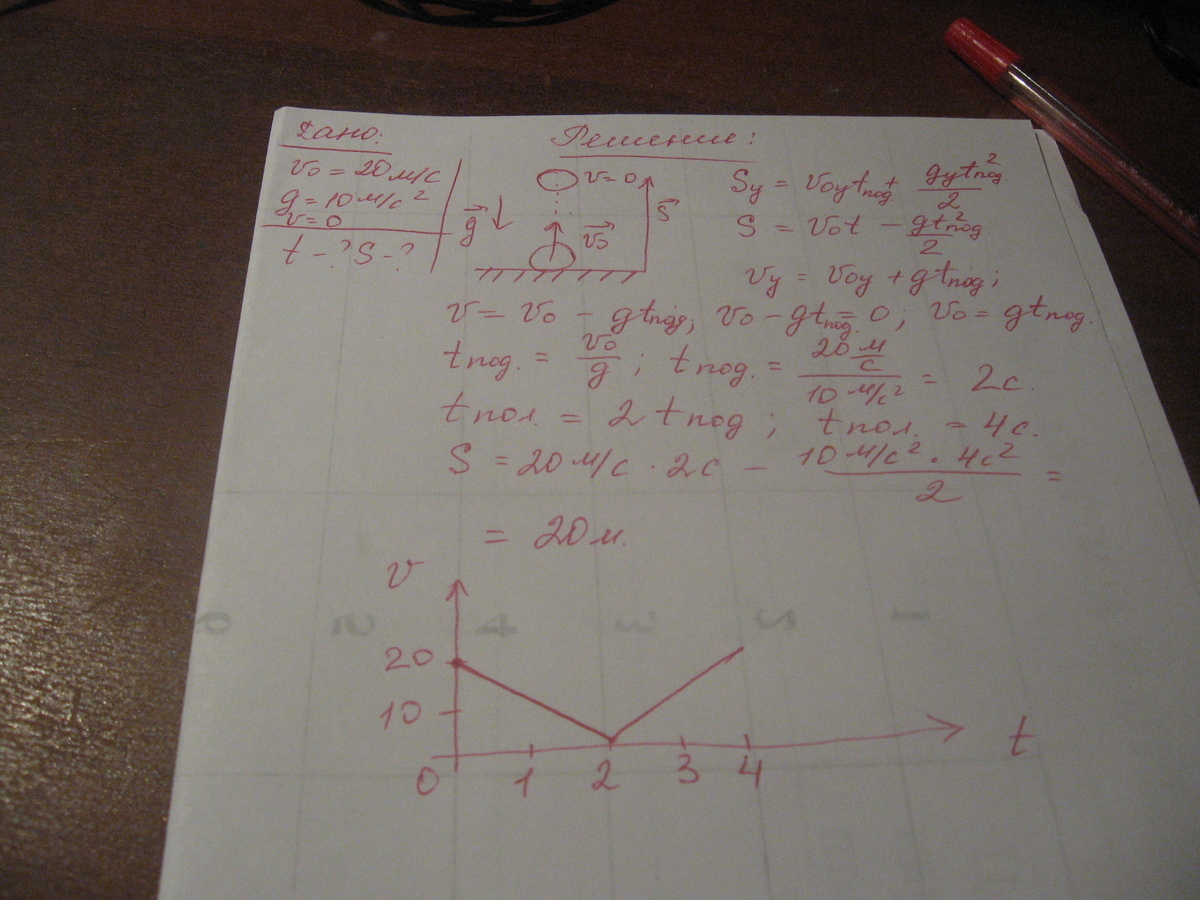 Дано:
v₀ = 20 м/с
g = 10 м/с²
v = 0
t - ? S - ?
Решение:
v = 0
g
v₀
S
Sy = v₀y tпод + gy tпод² / 2
S = v₀t − gtпод² / 2
vy = v₀y + gtпод;
v = v₀ − gtпод; v₀ − gtпод. = 0; v₀ = gtпод.
tпод. = v₀ / g ; tпод. = 20 м/с / 10 м/с² = 2с.
tпол. = 2 tпод ; tпол. = 4с.
S = 20 м/с · 2с − 10 м/с² · 4с² / 2 =
= 20 м.
v
6 5 4 3 2 1
20
10
0 1 2 3 4
t